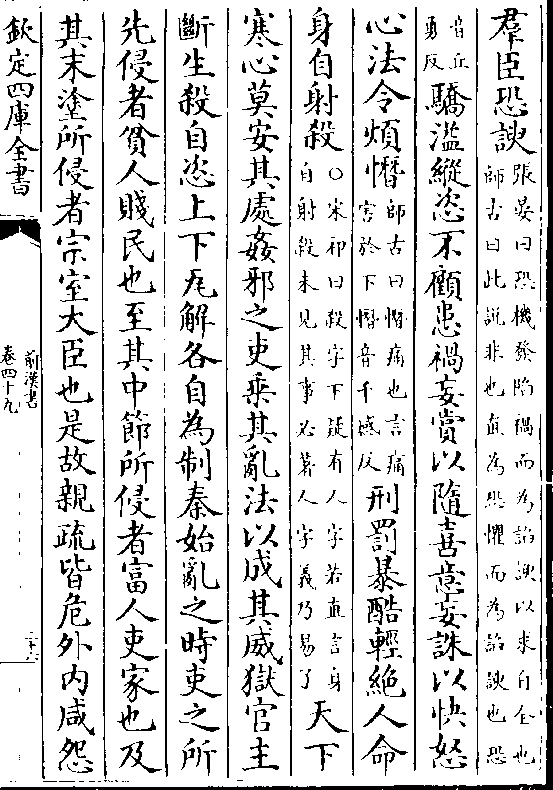 羣臣恐諛張晏曰恐機發陷禍而為諂諛以求自全也師古曰此説非也直為恐懼而為諂諛也恐
音丘勇反驕溢縱恣不顧患禍妄賞以隨喜意妄誅以快怒
心法令煩憯師古曰憯痛也言痛害於下憯音千感反刑罰暴酷輕絶人命
身自射殺○宋祁曰殺字下疑有人字若直言身自射殺未見其事必著人字義乃易了天下
寒心莫安其處姦邪之吏乘其亂法以成其威獄官主
斷生殺自恣上下瓦解各自為制秦始亂之時吏之所
先侵者貧人賤民也至其中節所侵者富人吏家也及
其末塗所侵者宗室大臣也是故親疏皆危外内咸怨
欽定四庫全書
前漢書
卷四十九